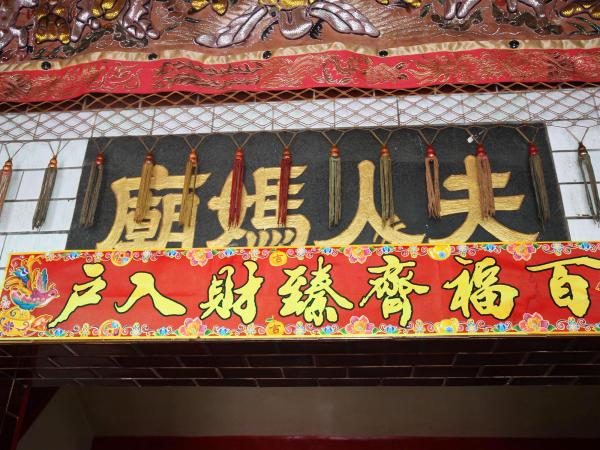 夫人媽廟
百福齊臻財入戶